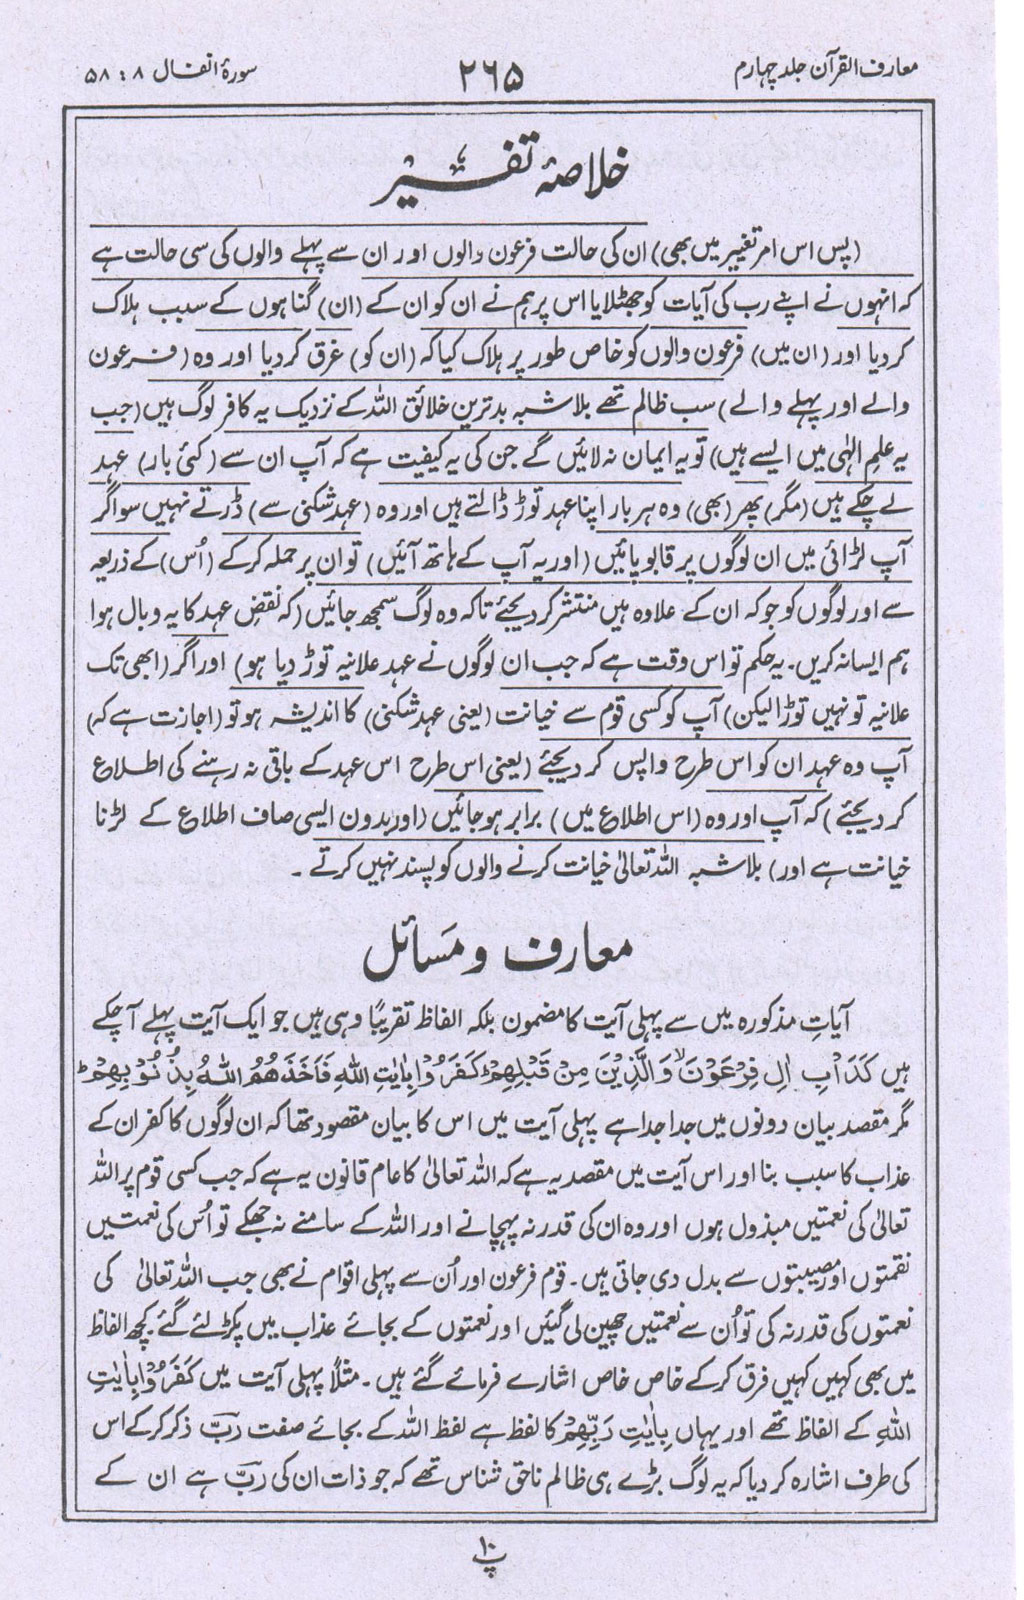 معارف القرآن جلد چہارم
۲۶۵
سورۂ انفال ۸ : ۵۸
خلاصۂ تفسیر
(پس اس امر تغییر میں بھی) ان کی حالت فرعون والوں اور ان سے پہلے والوں کی سی حالت ہے
کہ انہوں نے اپنے رب کی آیات کو جھٹلایا اس پر ہم نے ان کو ان کے (ان) گناہوں کے سبب ہلاک
کر دیا اور (ان میں) فرعون والوں کو خاص طور پر ہلاک کیا کہ (ان کو) غرق کر دیا اور وہ (فرعون
والے اور پہلے والے) سب ظالم تھے بلاشبہ بدترین خلائق اللہ کے نزدیک یہ کافر لوگ ہیں (جب
یہ علم الٰہی میں ایسے ہیں) تو یہ ایمان نہ لائیں گے جن کی یہ کیفیت ہے کہ آپ ان سے (کئی بار) عہد
لے چکے ہیں (مگر) پھر (بھی) وہ ہر بار اپنا عہد توڑ ڈالتے ہیں اور وہ (عہد شکنی سے) ڈرتے نہیں سو اگر
آپ لڑائی میں ان لوگوں پر قابو پائیں (اور یہ آپ کے ہاتھ آئیں) تو ان پر حملہ کر کے (اُس) کے ذریعہ
سے اور لوگوں کو جو کہ ان کے علاوہ ہیں منتشر کر دیجئے تاکہ وہ لوگ سمجھ جائیں (کہ نقضِ عہد کا یہ وبال ہوا
ہم ایسا نہ کریں۔ یہ حکم تو اس وقت ہے کہ جب ان لوگوں نے عہد علانیہ توڑ دیا ہو) اور اگر (ابھی تک
علانیہ تو نہیں توڑا لیکن) آپ کو کسی قوم سے خیانت (یعنی عہد شکنی) کا اندیشہ ہو تو (اجازت ہے کہ)
آپ وہ عہد ان کو اس طرح واپس کر دیجئے (یعنی اس طرح اس عہد کے باقی نہ رہنے کی اطلاع
کر دیجئے) کہ آپ اور وہ (اس اطلاع میں) برابر ہو جائیں (اور بدون ایسی صاف اطلاع کے لڑنا
خیانت ہے اور) بلاشبہ اللہ تعالیٰ خیانت کرنے والوں کو پسند نہیں کرتے ۔
معارف و مسائل
آیاتِ مذکورہ میں سے پہلی آیت کا مضمون بلکہ الفاظ تقریبًا وہی ہیں جو ایک آیت پہلے آ چکے
ہیں كَدَاْبِ اٰلِ فِرْعَوْنَ ۙ وَالَّذِيْنَ مِنْ قَبْلِهِمْ ؕ كَفَرُوْا بِاٰيٰتِ اللهِ فَاَخَذَهُمُ اللهُ بِذُنُوْبِهِمْ ؕ
مگر مقصد بیان دونوں میں جدا جدا ہے پہلی آیت میں اس کا بیان مقصود تھا کہ ان لوگوں کا کفر ان کے
عذاب کا سبب بنا اور اس آیت میں مقصد یہ ہے کہ اللہ تعالیٰ کا عام قانون یہ ہے کہ جب کسی قوم پر اللہ
تعالیٰ کی نعمتیں مبذول ہوں اور وہ ان کی قدر نہ پہچانے اور اللہ کے سامنے نہ جھکے تو اُس کی نعمتیں
نقمتوں اور مصیبتوں سے بدل دی جاتی ہیں۔ قوم فرعون اور اُن سے پہلی اقوام نے بھی جب اللہ تعالیٰ کی
نعمتوں کی قدر نہ کی تو اُن سے نعمتیں چھین لی گئیں اور نعمتوں کے بجائے عذاب میں پکڑ لئے گئے کچھ الفاظ
میں بھی کہیں کہیں فرق کر کے خاص خاص اشارے فرمائے گئے ہیں۔ مثلًا پہلی آیت میں كَفَرُوْا بِاٰيٰتِ
اللهِ کے الفاظ تھے اور یہاں بِاٰيٰتِ رَبِّهِمْ کا لفظ ہے لفظ اللہ کے بجائے صفت ربّ ذکر کر کے اس
کی طرف اشارہ کر دیا کہ یہ لوگ بڑے ہی ظالم ناحق شناس تھے کہ جو ذات ان کی ربّ ہے ان کے
پ۱۰